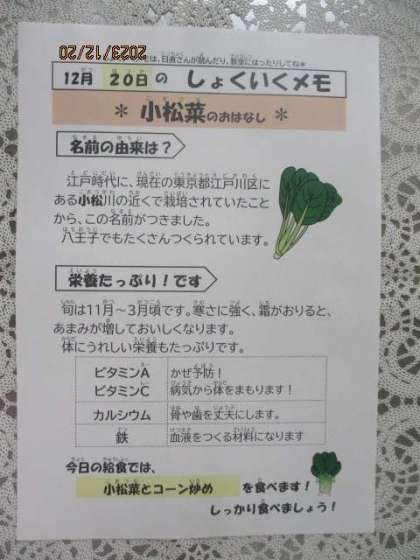 2023/12/20
は、日直さんが読んだり、教室にはったりしてね＊
12月 20日 の しょくいくメモ
＊ 小松菜のおはなし ＊
名前の由来は？
江戸時代に、現在の東京都江戸川区に
ある小松川の近くで栽培されていたこと
から、この名前がつきました。
八王子でもたくさんつくられています。
栄養たっぷり！です
旬は11月～3月頃です。寒さに強く、霜がおりると、
あまみが増しておいしくなります。
体にうれしい栄養もたっぷりです。
ビタミンA かぜ予防！
ビタミンC 病気から体をまもります！
カルシウム 骨や歯を丈夫にします。
鉄 血液をつくる材料になります
今日の給食では、
小松菜とコーン炒め を食べます！
しっかり食べましょう！